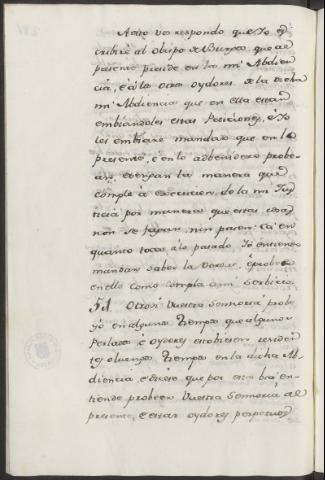 Aesto vos respondo que Yo es
cribiré al obispo de Burgos que al
presente preside en la mi Abdien
cia, é á los otros oydores de la dicha
mi Abdiencia que en ella estan
embiandoles estas Peticiones, é Yo
les embiaré mandar que en lo
presente, é en lo advenidero probe
an, é tengan la manera que
cumple á execucion de la mi Jus
ticia, por manera que estas cosas
non se fagan, nin pasen. Ca en
quanto toca á lo pasado, Yo entiendo
mandar saber la verdad, é probeer
en ello como cumpla á mi serbicio
51. Otrosi Vuestra Señoria probe
yó en algunos tiempos que algunos
Perlados é oydores estobiesen residen
tes algunos tiempos en la dicha Ab
diencia, é diz que por esta bia, en
tiende probeer Vuestra Señoria al
presente, é estar oydores perpetuos